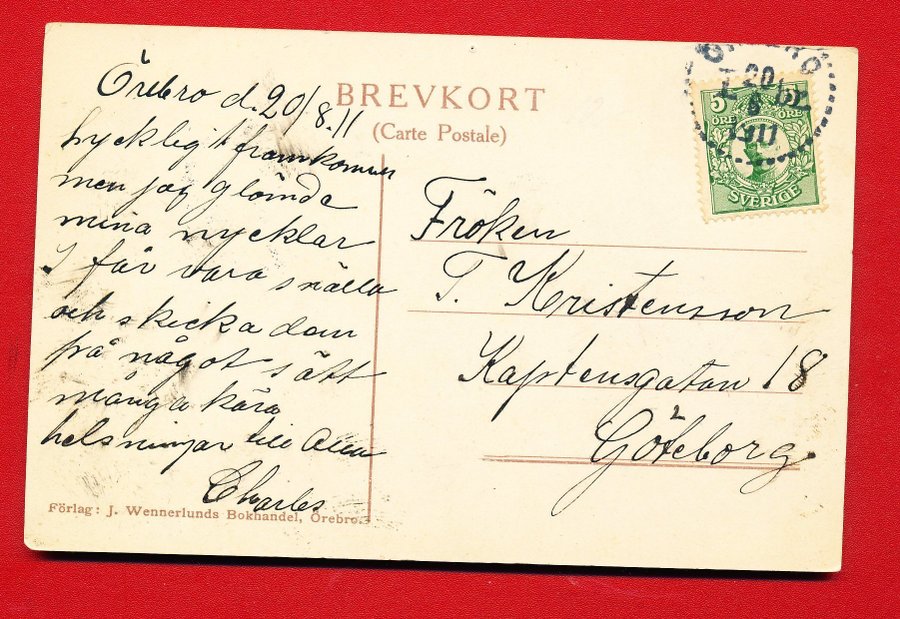 Örebro d. 20/8.11
Lyckligt framkommen
men jag glömde
mina nycklar
I får vara snälla
och skicka dom
på något sätt
många kära
helsningar till Alla
Charles
Förlag: J. Wennerlunds Bokhandel, Örebro.
BREVKORT
(Carte Postale)
Fröken
T. Kristensson
Kaptensgatan 18
2
Göteborg.
ÖREBRO
20
8
1911
5 5
ÖRE ÖRE
SVERIGE